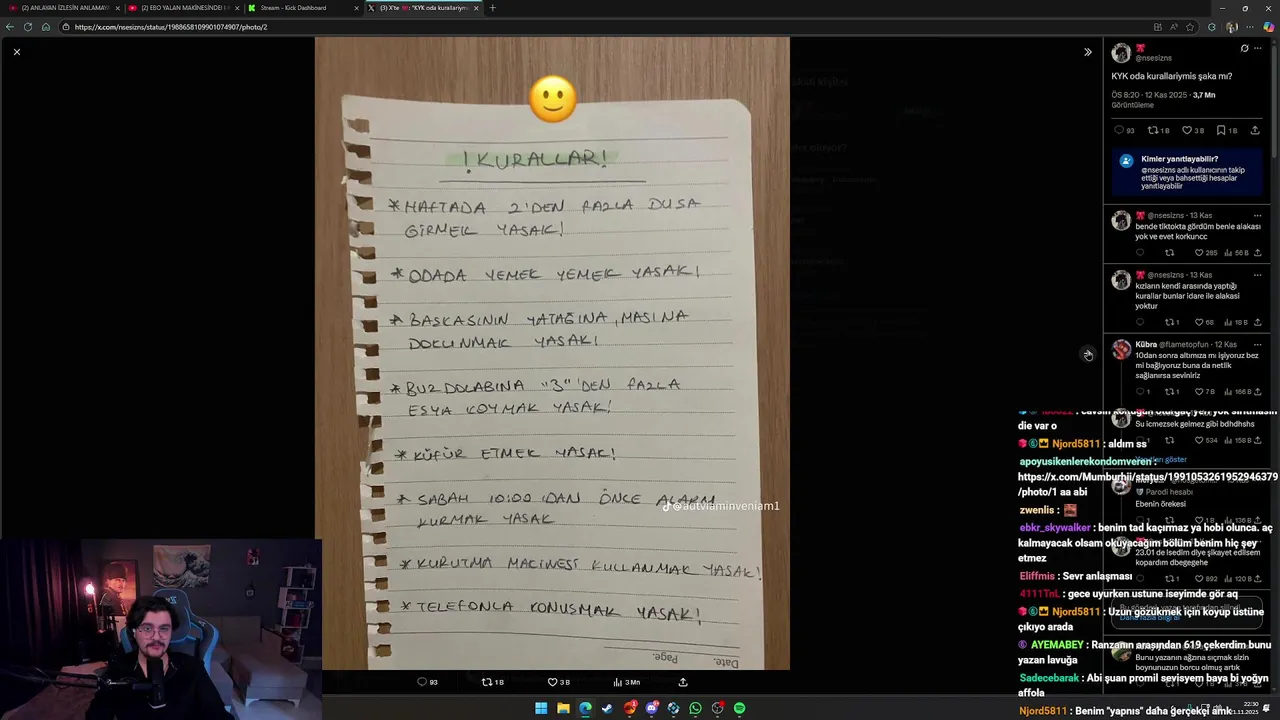 (2) ANLAYAN İZLESİN ANLAMAYA
(2) EBO YALAN MAKİNESİNDE!
Stream - Kick Dashboard
(3) X'te : "KYK oda kurallariymis
https://x.com/nsesizns/status/1988658109901074907/photo/2
! KURALLAR!
* HAFTADA 2'DEN FAZLA DUSA
GİRMEK YASAK!
* ODADA YEMEK YEMEK YASAK!
* BASKASININ YATAĞINA, MASINA
DOKUNMAK YASAK!
* BUZ DOLABINA "3"'DEN FAZLA
ESYA KOYMAK YASAK!
* KÜFÜR ETMEK YASAK!
* SABAH 10:00 'DAN ÖNCE ALARM
KURMAK YASAK
* KURUTMA MACİNESİ KULLANMAK YASAK!
* TELEFONLA KONUSMAK YASAK!
Page.
Date.
@autviaminveniam1
93
1 B
3 B
3 Mn
@nsesizns
KYK oda kurallariymis şaka mı?
ÖS 8:20 · 12 Kas 2025 · 3,7 Mn
Görüntüleme
93
1 B
3 B
1 B
Kimler yanıtlayabilir?
@nsesizns adlı kullanıcının takip
ettiği veya bahsettiği hesaplar
yanıtlayabilir
@nsesizns · 13 Kas
bende tiktokta gördüm benle alakası
yok ve evet korkuncc
285
56 B
@nsesizns · 13 Kas
kızların kendi arasında yaptığı
kurallar bunlar idare ile alakasi
yoktur
1
68
19 B
Kübra @flametopfun · 12 Kas
10dan sonra altımıza mı işiyoruz bez
mi bağlıyoruz buna da netlik
sağlanırsa seviniriz
1
1
7 B
186 B
Su icmezsek gelmez gibi bdhdhshs
534
158 B
göster
Parodi hesabı
Ebenin örekesi
136 B
23.01 de lsedim dlye şikayet edilsem
kopardım dbegegehe
1
892
120 B
Daha fazla bilgi al
Bunu yazanın ağzına sıçmak sizin
boynunuzun borcu olmuş artık
die var o
Njord5811 : aldım ss
apoyusikenlerekondomveren :
https://x.com/Mumburhii/status/1991053261952946379
/photo/1 aa abi
zwenlis :
ebkr_skywalker : benim tad kaçırmaz ya hobi olunca. aç
kalmayacak olsam okuyacağım bölüm benim hiç şey
etmez
Eliffmis : Sevr anlaşması
4111TnL : gece uyurken ustune iseyimde gör aq
Njord5811 : Uzun gözükmek için koyup üstüne
çıkıyo arada
AYEMABEY : Ranzanın arasından 619 çekerdim bunu
yazan lavuğa
Sadecebarak : Abi şuan promil sevisyem baya bi yoğyn
affola
Njord5811 : Benim "yapnıs" daha gerçekçi amk
22:30